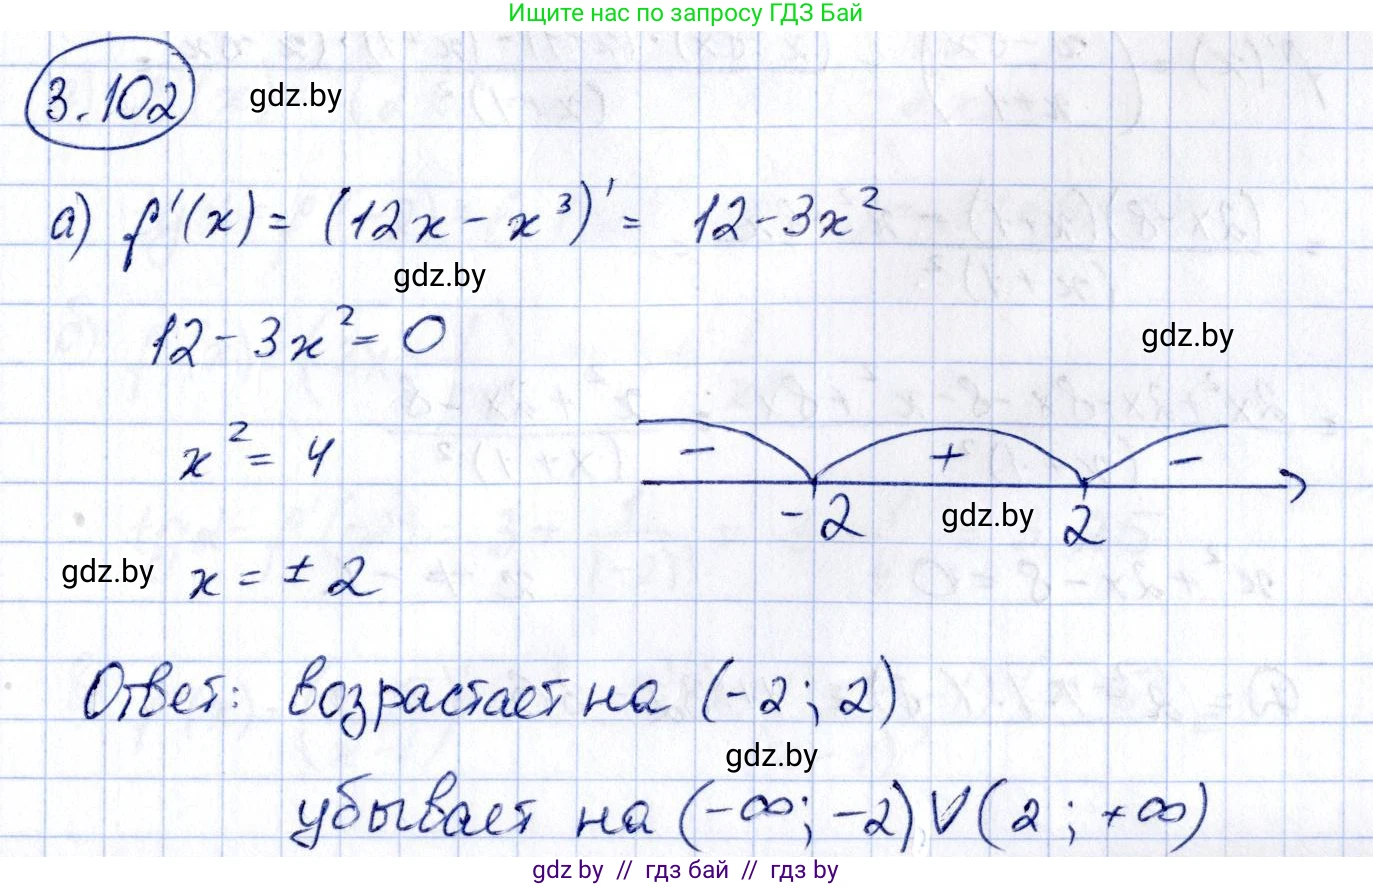 Ищите нас по запросу ГДЗ Бай
3.102 gdz.by
а) f'(x) = (12x - x³)' = 12 - 3x²
gdz.by
12 - 3x² = 0
gdz.by
x² = 4
- + -
-2 gdz.by 2
gdz.by x = ± 2
Ответ: возрастает на (-2; 2)
gdz.by
убывает на (-∞; -2) V (2; +∞)
gdz.by // гдз бай // гдз by